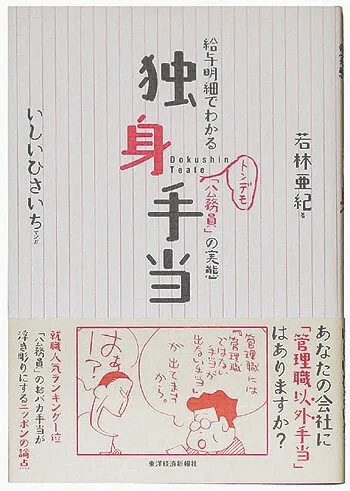 給与明細でわかる
独身手当
Dokushin
Teate
トンデモ
「公務員」の実態
若林亜紀 著
いしいひさいち マンガ
あなたの会社に
「管理職以外手当」
はありますか?
管理職には
『管理職
ではない
手当』が
出ない手当
が出てます
から。
はぁ!?
就職人気ランキング一位
「公務員」の超バカ手当が
浮き彫りにするニッポンの論点
東洋経済新報社